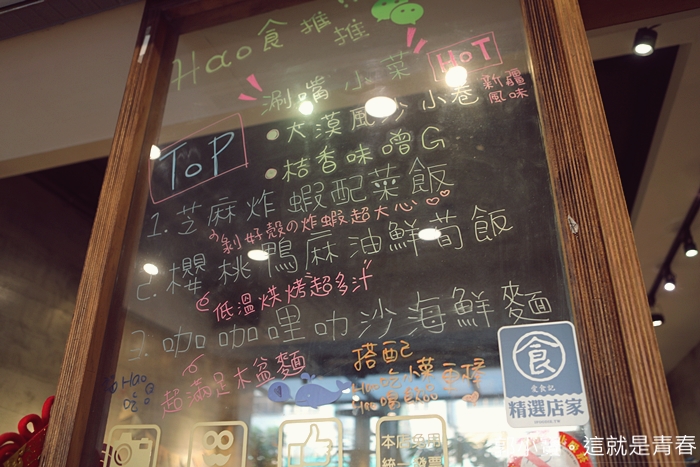 Hao食推推!!
涮嘴小菜
HOT
新疆風味
大漠風沙小卷
桔香味噌G
TOP
1. 芝麻炸蝦配菜飯
剝好殼の炸蝦超大心
2. 櫻桃鴨麻油鮮荀飯
低溫烘烤超多汁
3. 咖咖哩叻沙海鮮麵
超滿足木盆麵
搭配
Hao吃小菜
Hao
Hao吃
食
愛食記
精選店家
本店免用
統一發票
這就是青春